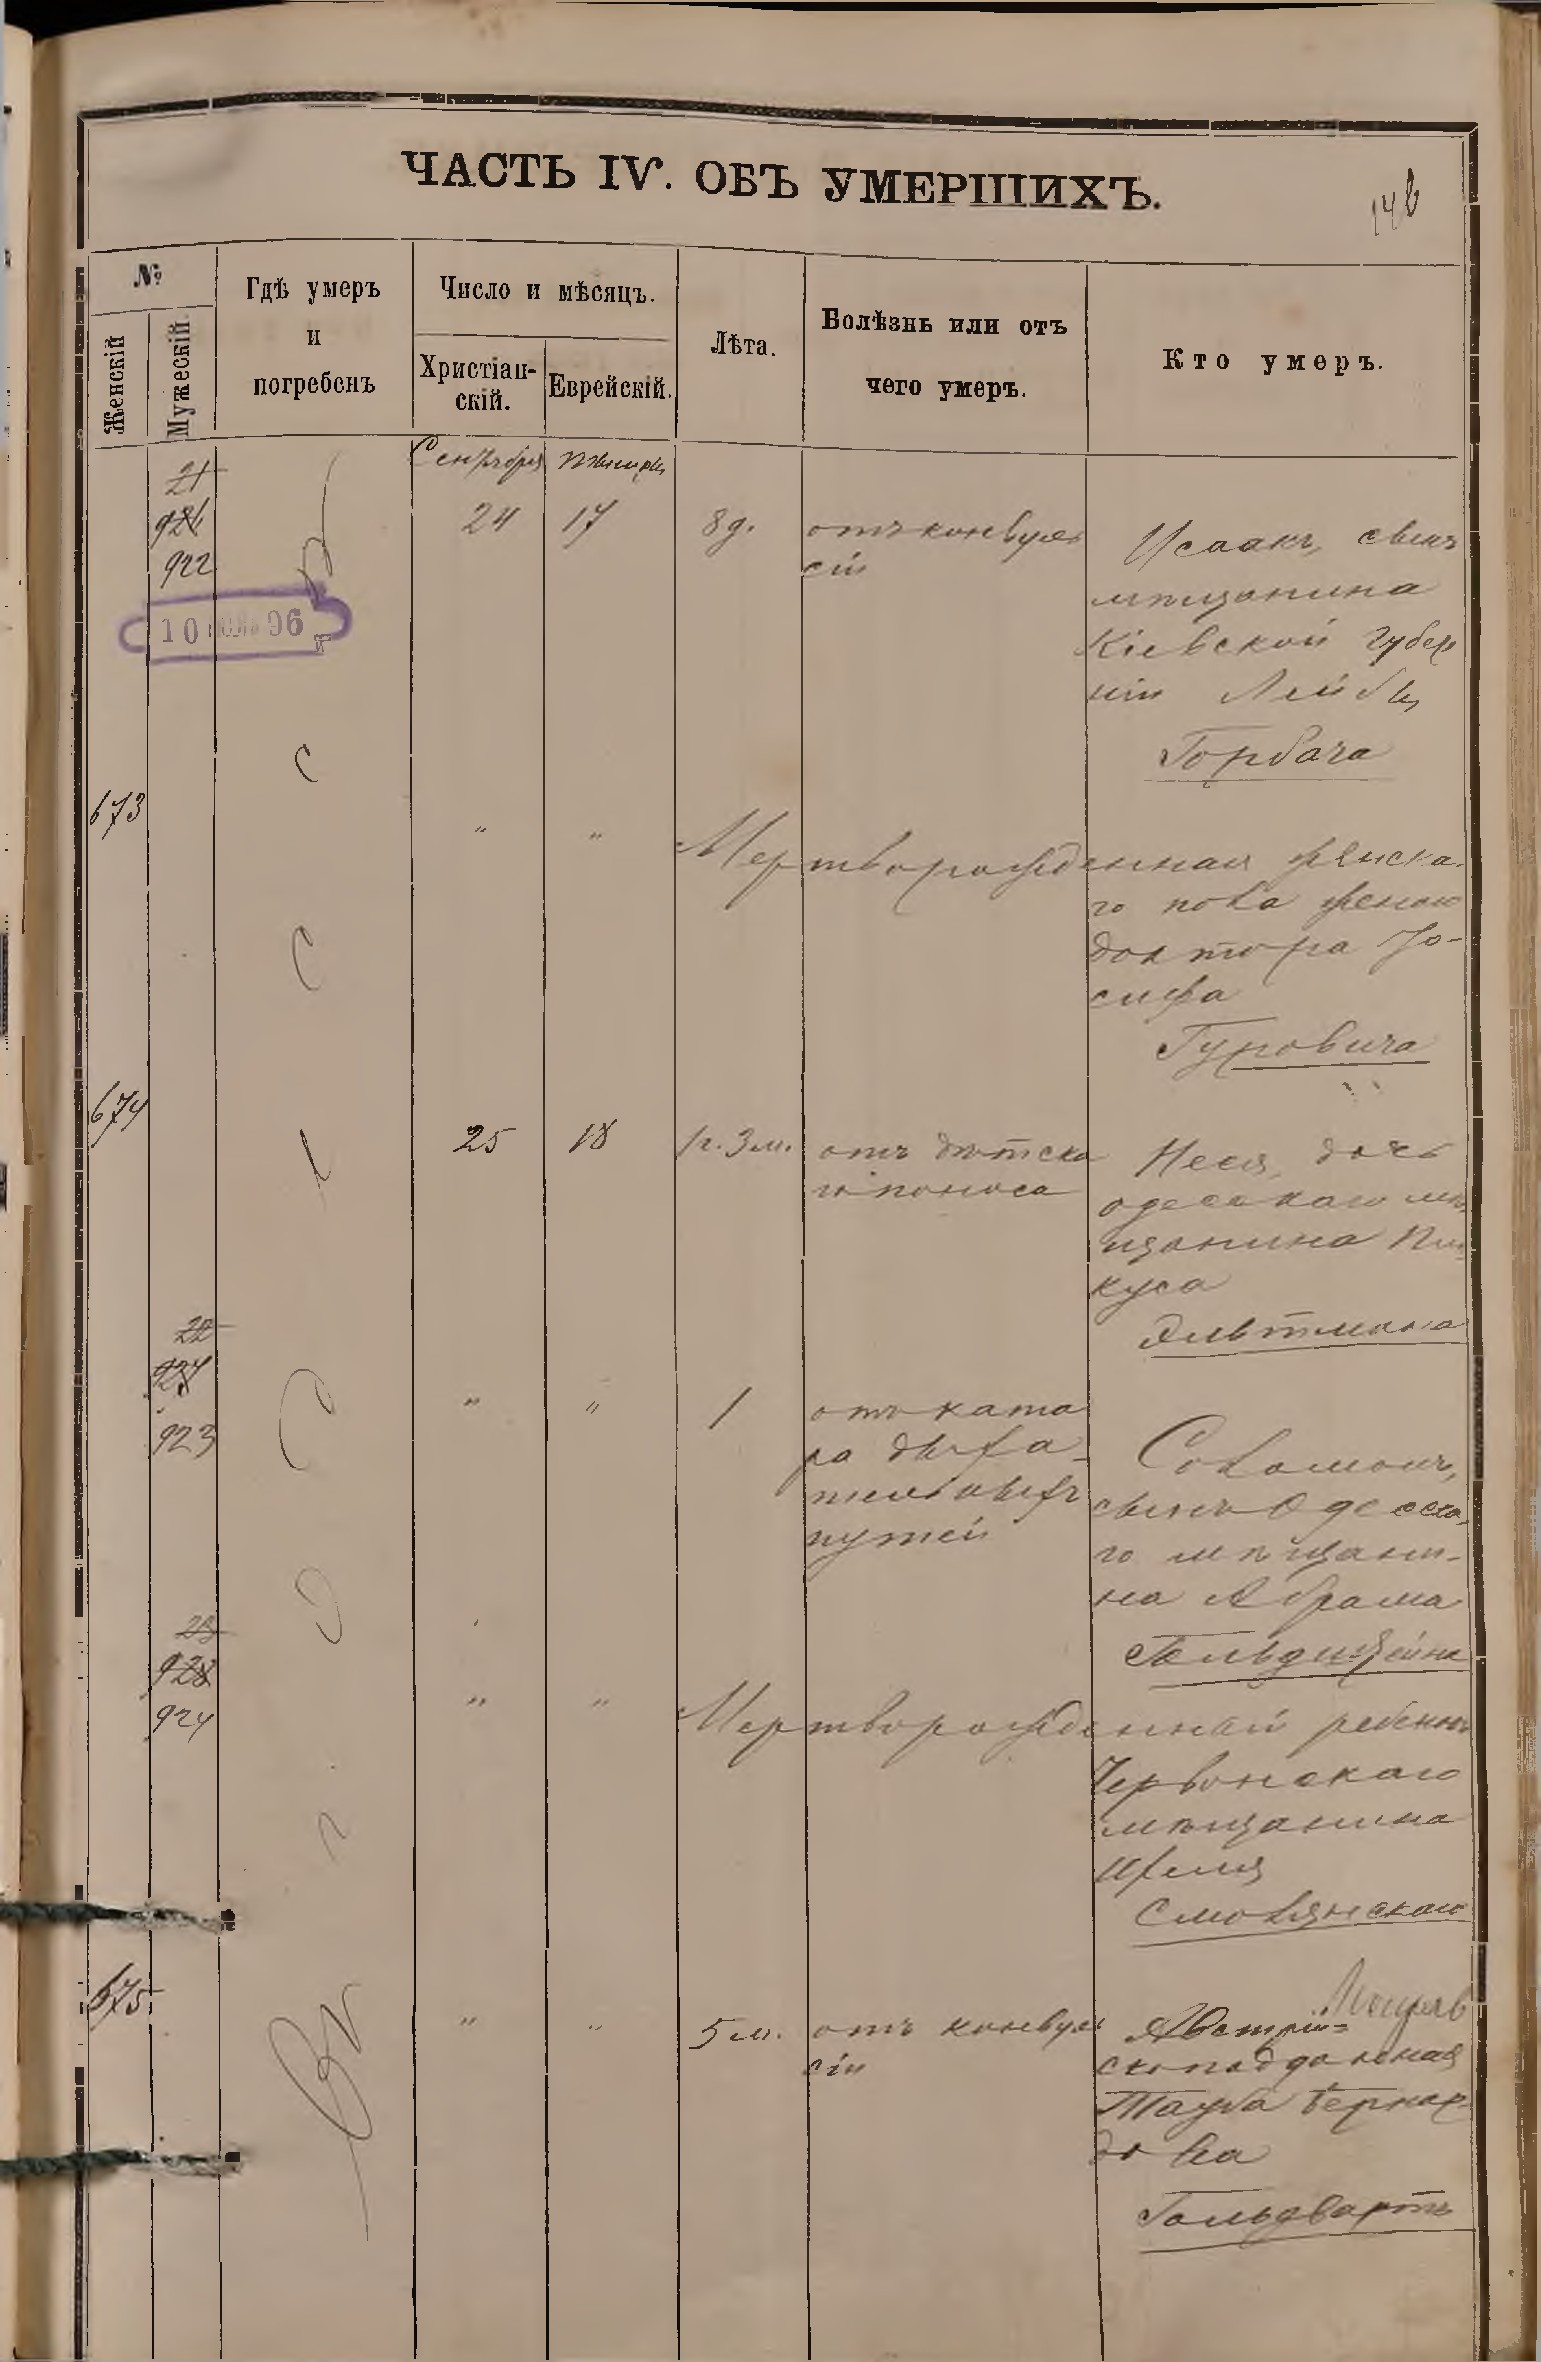 ЧАСТЬ IV. ОБЪ УМЕРШИХЪ.
№
Женскій
Мужескій
Гдѣ умеръ
и
погребенъ
Число и мѣсяцъ.
Христіан-
скій.
Еврейскій.
Лѣта.
Болѣзнь или отъ
чего умеръ.
Кто умеръ.
Сентября Тишри
21
922
24 17 8 д. отъ конвуль
сіи
Исаакъ, сынъ
мѣщанина
Кіевской губер
ніи Лейбы
Горбача
10 96
673
" " Мертворожденная женска
го пола женою
доктора Іо-
сифа
Гуровича
674
25 18 1 г. 3 м. отъ дѣтска
го поноса
Неся, дочь
одесскаго мѣ
щанина Пин
куса
Альтмана
22
923
" " 1 отъ ката
ра дыха-
тельныхъ
путей
Соломонъ,
сынъ Одесска
го мѣщани-
на Абрама
Гольдштейна
23
928
924
" " Мертворожденный ребенокъ
мѣщанина
Смолянскаго
675
" " 5 м. отъ конвуль
сіи
Австрій-
скоподданная
Тауба Бернар
дова
Гольдвартъ
Въ г. Одессѣ